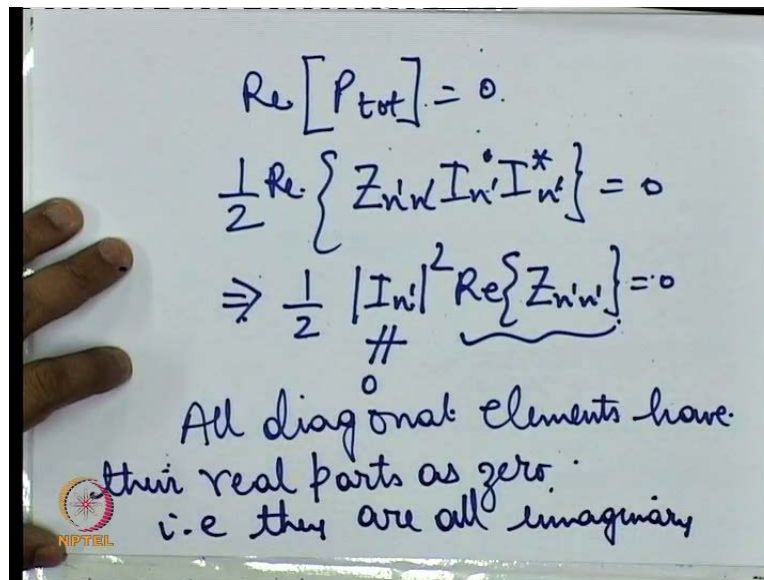 Re [P_tot] = 0.
1/2 Re. { Z_n'n' I_n' I_n'^* } = 0
⇒ 1/2 |I_n'|^2 Re{Z_n'n'} = 0
≠
0
All diagonal elements have
their real parts as zero.
i.e they are all immaginary
NPTEL